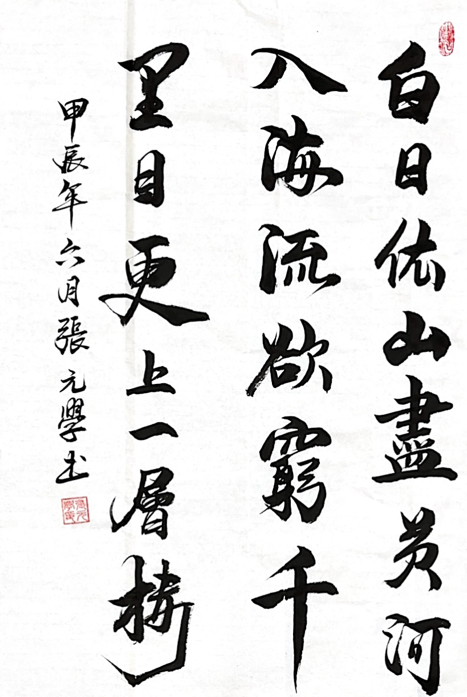 白日依山盡黄河
入海流欲窮千
里目更上一層樓
甲辰年六月張元學书